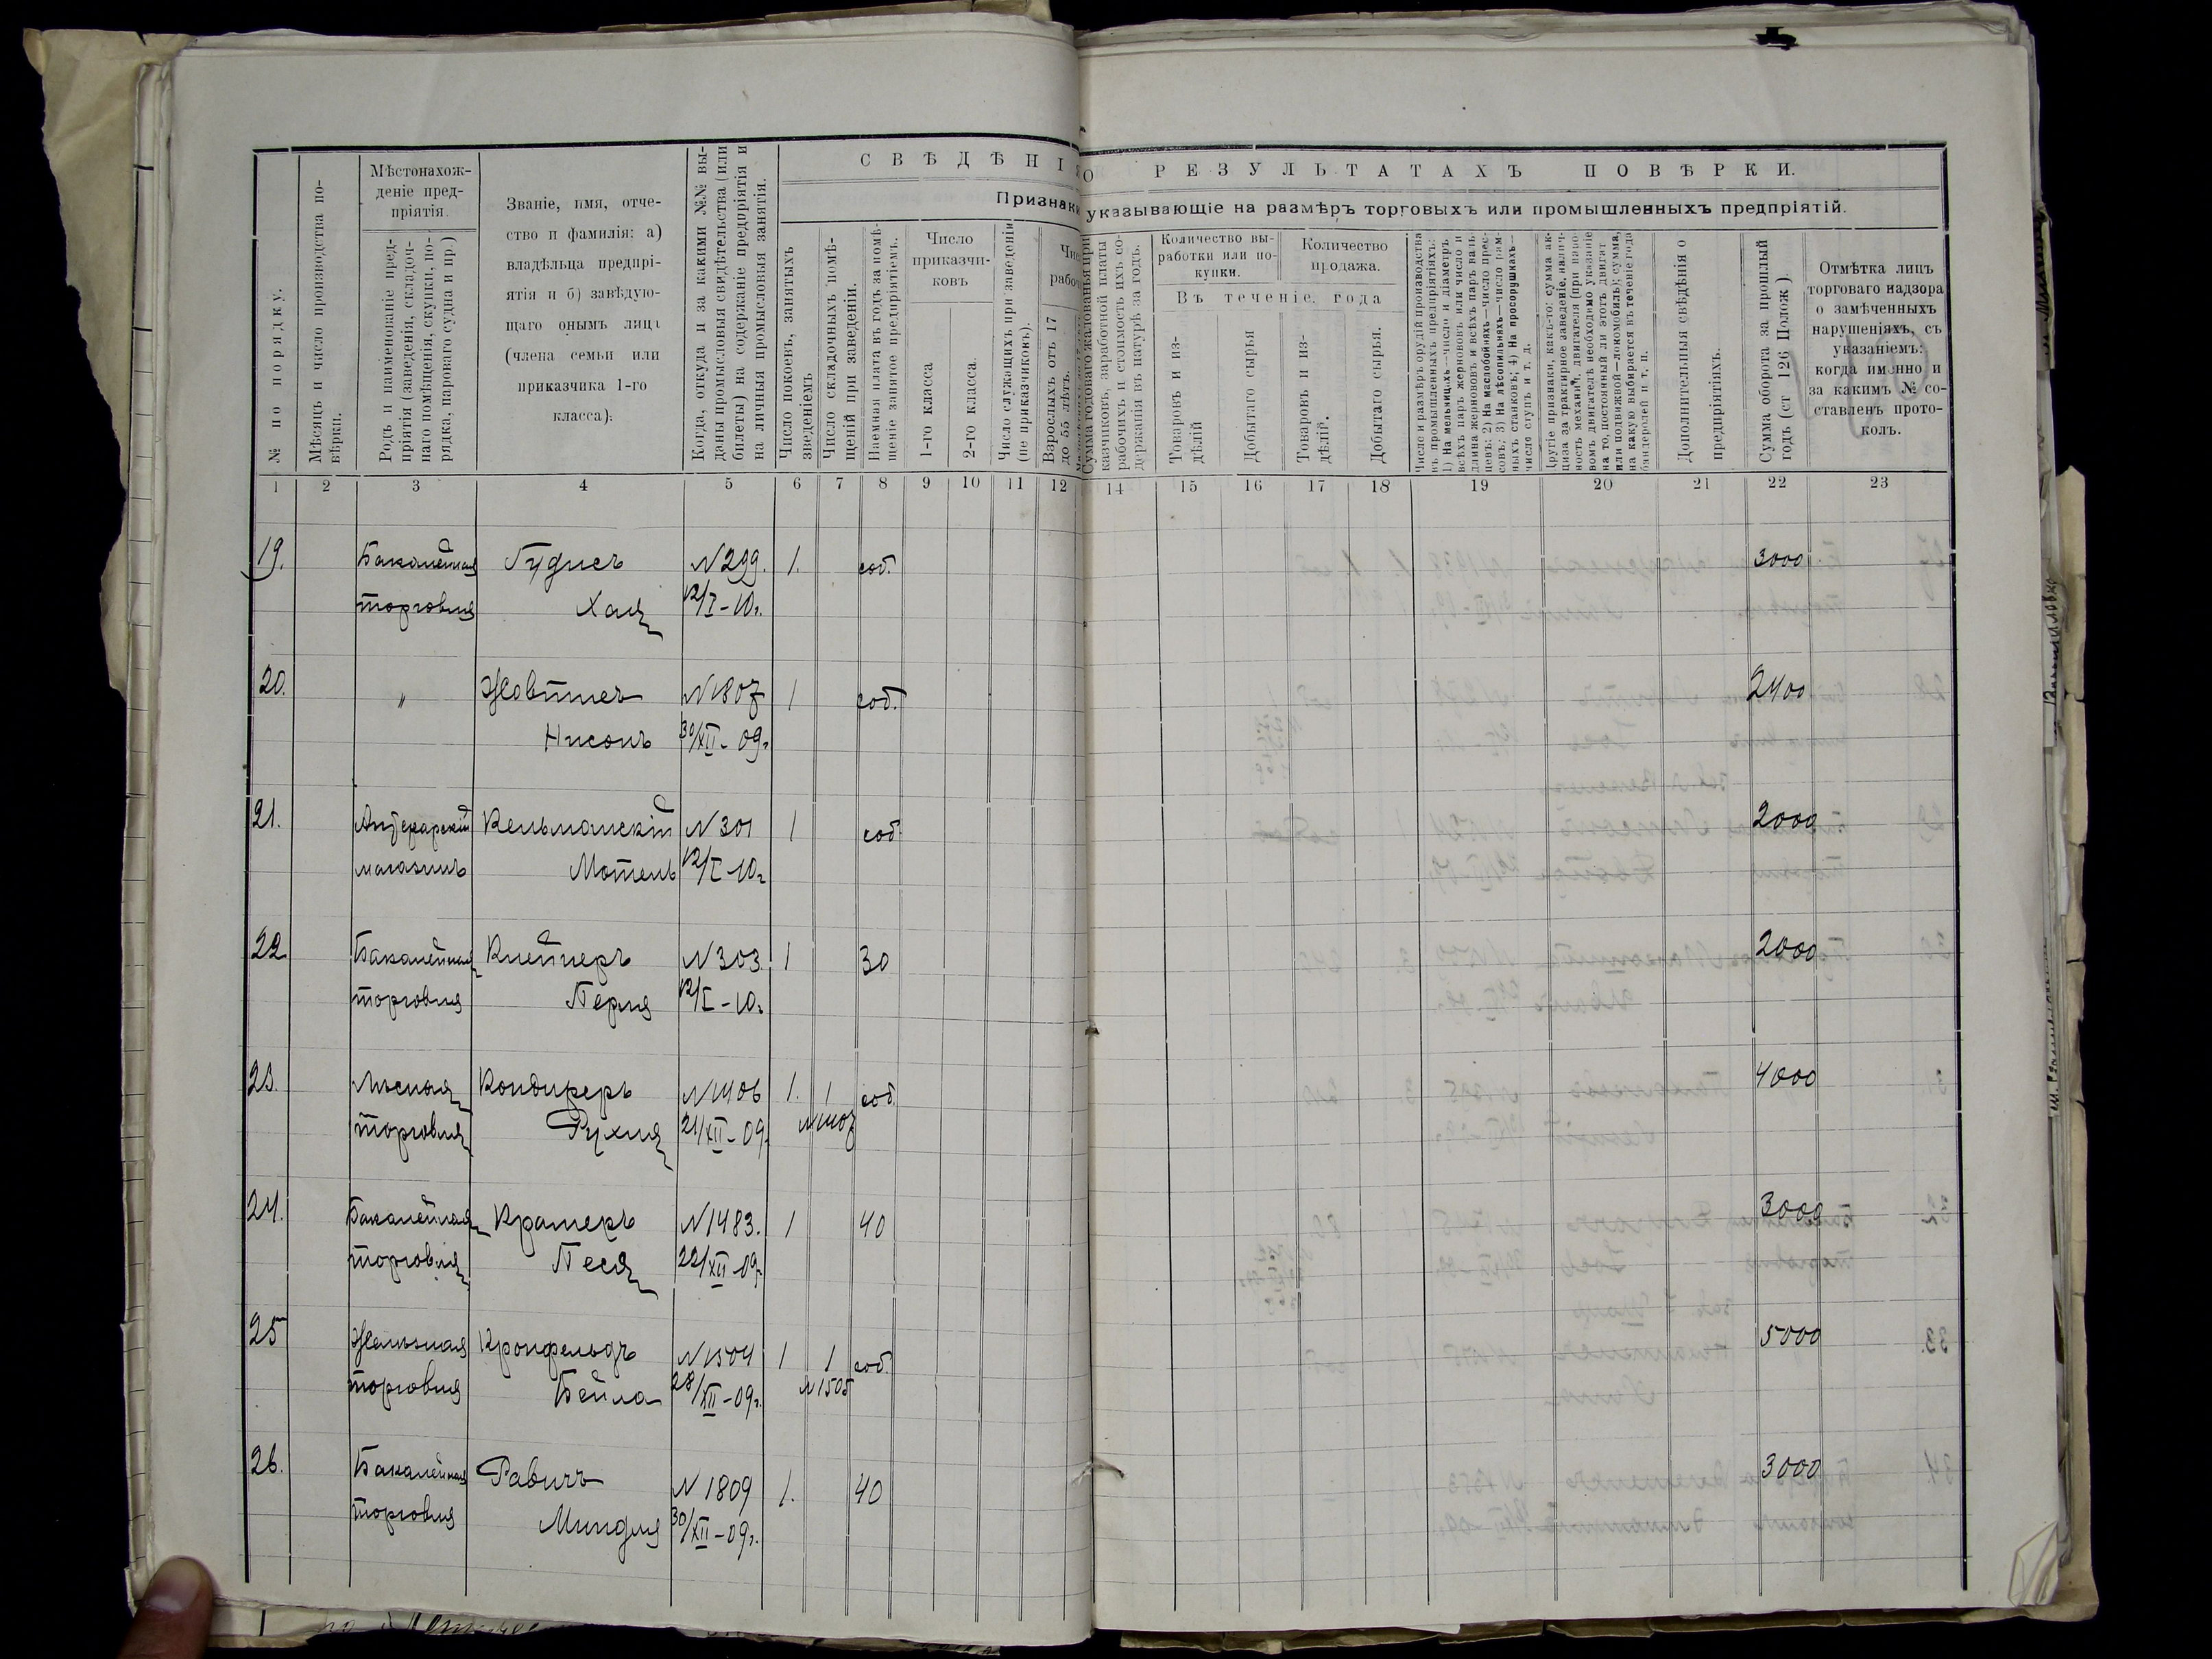 СВѢДѢНІЯ О РЕЗУЛЬТАТАХЪ ПОВѢРКИ.
Признаки указывающіе на размѣръ торговыхъ или промышленныхъ предпріятій.
№ по порядку.
Мѣсяцъ и число производства по-
вѣрки.
Мѣстонахож-
деніе пред-
пріятія.
Родъ и наименованіе пред-
пріятія (заведенія, складоч-
наго помѣщенія, скупки, по-
рядка, парового судна и пр.)
Званіе, имя, отче-
ство и фамилія: а)
владѣльца предпрі-
ятія и б) завѣдую-
щаго онымъ лица
(члена семьи или
приказчика 1-го
класса).
Когда, откуда и за какими №№ вы-
даны промысловыя свидѣтельства (или
билеты) на содержаніе предпріятія и
на личныя промысловыя занятія.
Число покоевъ, занятыхъ
заведеніемъ
Число складочныхъ помѣ-
щеній при заведеніи.
Наемная плата въ годъ за помѣ-
щеніе занятое предпріятіемъ.
Число
приказчи-
ковъ
1-го класса
2-го класса.
Число служащихъ при заведеніи
(не приказчиковъ).
Чис
рабоч
Взрослыхъ отъ 17
до 55 лѣтъ.
Сумма годового жалованья при
казчиковъ, заработной платы
рабочихъ и стоимость ихъ со-
держанія въ натурѣ за годъ.
Количество вы-
работки или по-
купки.
Количество
продажа.
Въ теченіе года
Товаровъ и из-
дѣлій
Добытаго сырья
Товаровъ и из-
дѣлій.
Добытаго сырья.
Число и размѣръ орудій производства
въ промышленныхъ предпріятіяхъ:
1) На мельницахъ—число и діаметръ
всѣхъ паръ жернововъ или число и
длина жернововъ и всѣхъ паръ валь
цевъ: 2) На маслобойняхъ—число прес-
совъ; 3) На лѣсопильняхъ—число рам-
ныхъ станковъ; 4) На просорушкахъ—
число ступъ и т. д.
Другіе признаки, какъ-то: сумма ак-
циза за трактирное заведеніе, налич-
ность механич. двигателя (при паро-
вомъ двигателѣ необходимо указаніе
на то, постоянный ли этотъ двигат
или подвижной—локомобиль); сумма,
на какую выбирается въ теченіе года
бандеролей и т. п.
Дополнительныя свѣдѣнія о
предпріятіяхъ.
Сумма оборота за прошлый
годъ (ст 126 Полож)
Отмѣтка лицъ
торговаго надзора
о замѣченныхъ
нарушеніяхъ, съ
указаніемъ:
когда именно и
за какимъ № со-
ставленъ прото-
колъ.
1 2 3 4 5 6 7 8 9 10 11 12 14 15 16 17 18 19 20 21 22 23
19. Бакалейная Гудисъ N299. 1. соб. 3000
торговля Хая 12/I-10г.
20. " Жовтисъ N1807 1 соб. 2400
Нисонъ 30/XII-09г.
21. Аптекарскій Кельманскій N301 1 соб. 2000
магазинъ Мотель 12/I-10г.
22 Бакалейная Клейнеръ N303 1 30 2000
торговля Перля 12/I-10г.
23. Лѣсная Кондиреръ N1406 1. 1 соб. 4000
торговля Рухля 21/XII-09. N1407
24. Бакалейная Крамеръ N1483. 1 40 3000
торговля Песя 22/XII-09г.
25 Желѣзная Кронфельдъ N1504 1 1 соб. 5000
торговля Бейла 28/XII-09г. N1505
26. Бакалейная Равичъ N1809 1. 40 3000
торговля Миндля 30/XII-09г.